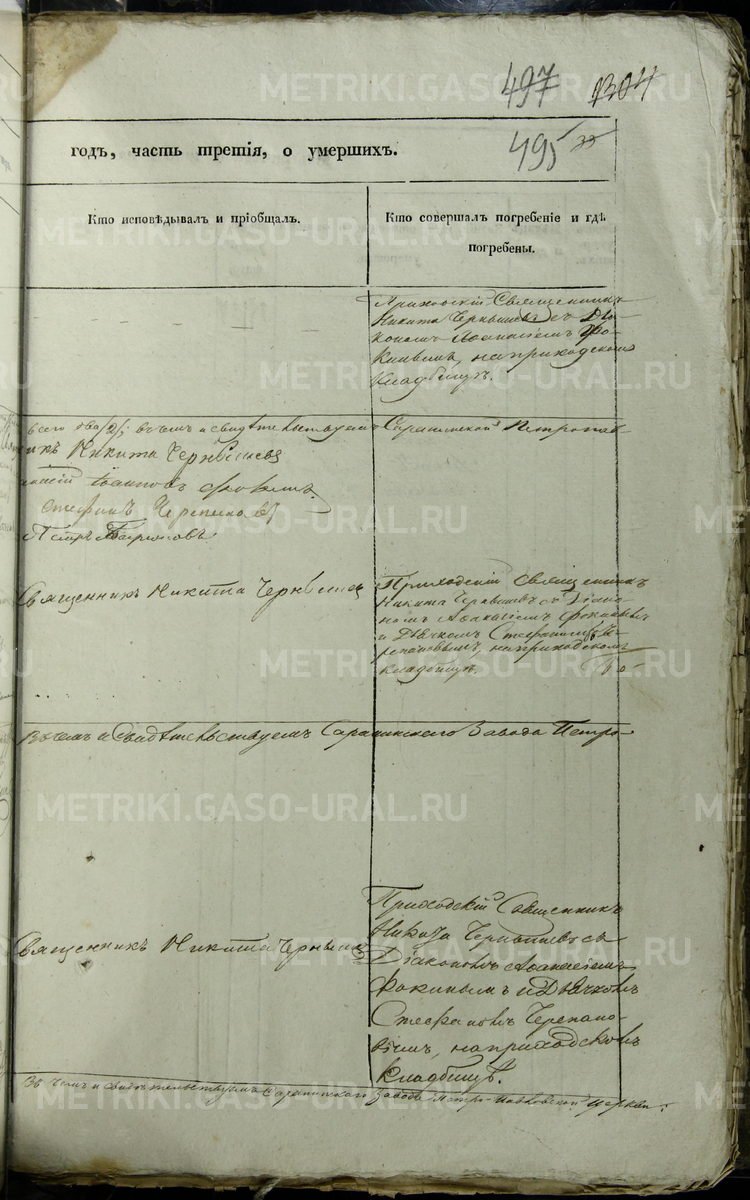 497 1304
495
годъ, часть третія, о умершихъ.
Кто исповѣдывалъ и пріобщалъ.
Кто совершалъ погребеніе и гдѣ
погребены.
Приходскій Священникъ
Никита Чернышевъ съ Діа-
кономъ Аѳанасіемъ Фо-
кинымъ, на приходскомъ
кладбищѣ.
всего два /2/; въ чемъ и свидѣтельствуемъ Саранинской Петропав
икъ Никита Чернышевъ
Іоанновъ Фокинъ.
Стефанъ Черепановъ
Петръ
Священникъ Никита Чернышевъ
Приходскій Священникъ
Никита Чернышевъ съ Діако-
номъ Аѳанасіемъ Фокинымъ
и Дьячкомъ Стефаномъ Че-
репановымъ, на приходскомъ
кладбищѣ.
Въ чемъ и свидѣтельствуемъ Саранинскаго Завода Петро-
Священникъ Никита Чернышевъ
Приходскій Священникъ
Никита Чернышевъ съ
Діакономъ Аѳанасіемъ
Фокинымъ и Дьячкомъ
Стефаномъ Черепано-
вымъ, на приходскомъ
кладбищѣ.
Въ чемъ и свидѣтельствуемъ Саранинскаго Завода Петро-Павловской церкви.
METRIKI.GASO-URAL.RU